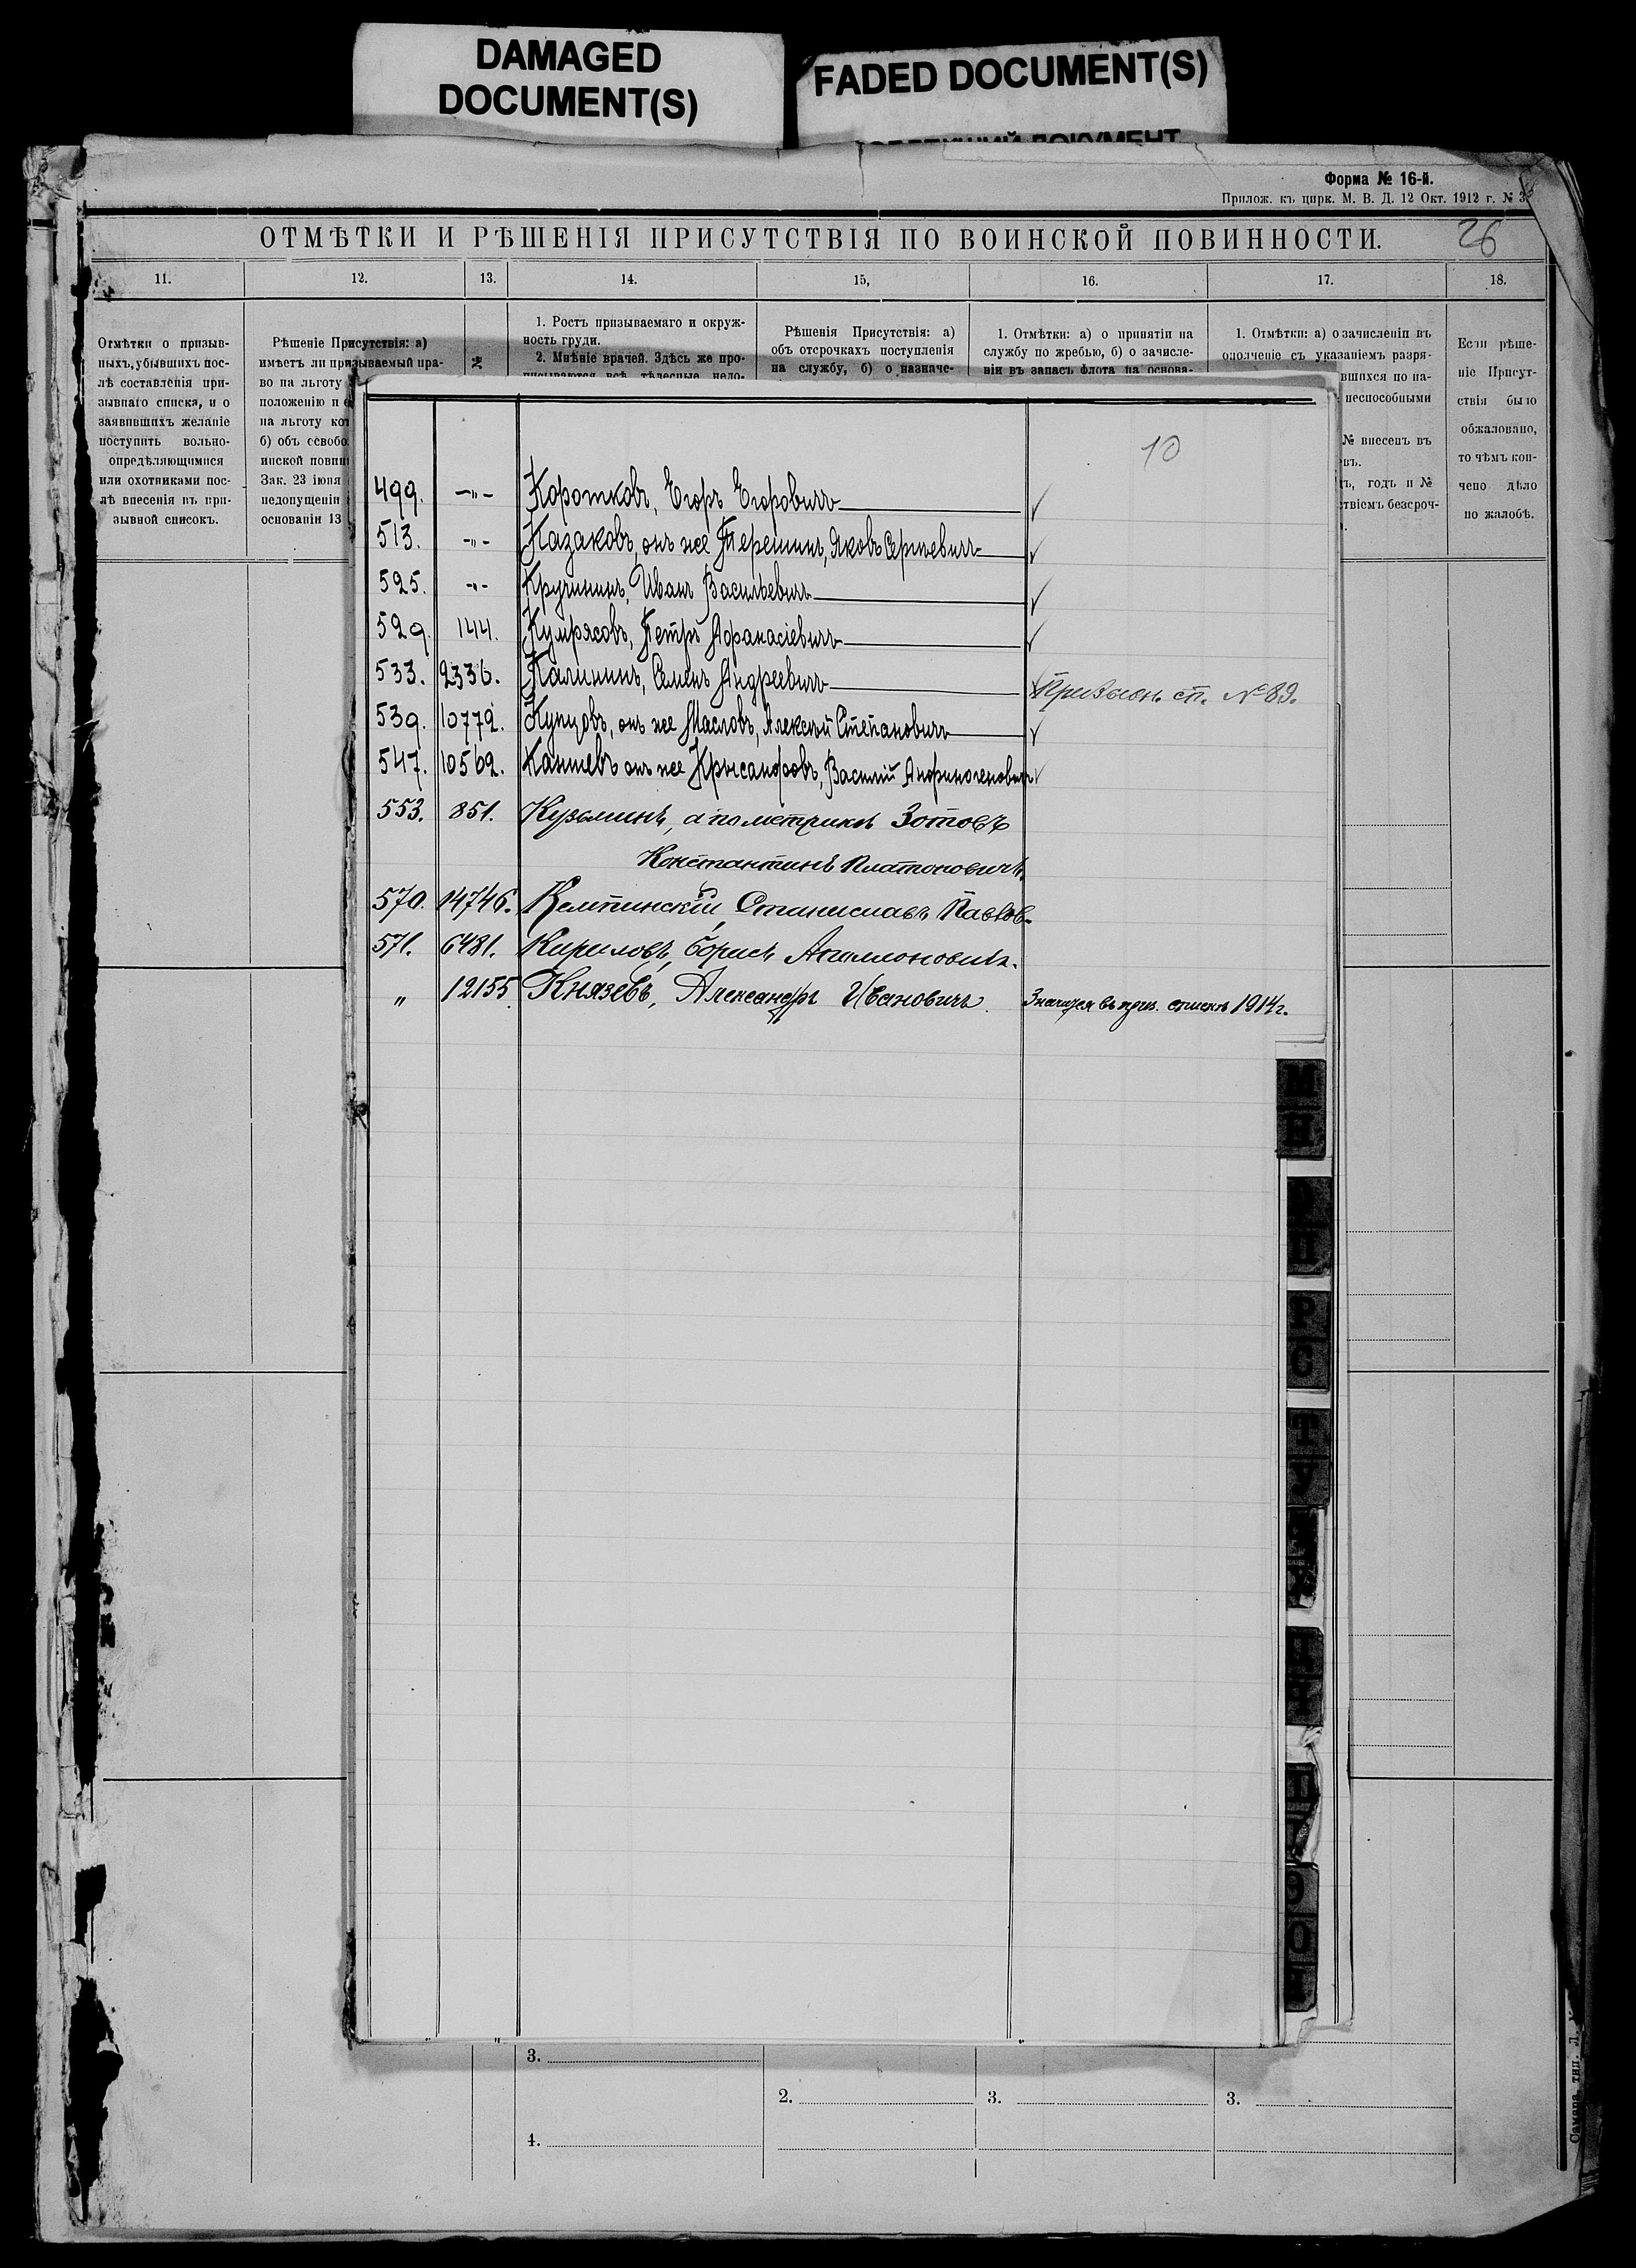 DAMAGED
DOCUMENT(S)
FADED DOCUMENT(S)
Форма № 16-й.
Прилож. къ цирк. М. В. Д. 12 Окт. 1912 г. № 3
ОТМѢТКИ И РѢШЕНІЯ ПРИСУТСТВІЯ ПО ВОИНСКОЙ ПОВИННОСТИ.
26
11. 12. 13. 14. 15, 16. 17. 18.
Отмѣтки о призыв-
ныхъ, убывшихъ пос-
лѣ составленія при-
зывнаго списка, и о
заявившихъ желаніе
поступить вольно-
опредѣляющимися
или охотниками пос-
лѣ внесенія въ при-
зывной списокъ.
Рѣшеніе Присутствія: а)
имѣетъ ли призываемый пра-
во на льготу
положенію и
на льготу
б) объ освобо
инской повин
Зак. 23 іюня
недопущеніи
основаніи 13
№
1. Ростъ призываемаго и окруж-
ность груди.
2. Мнѣніе врачей. Здѣсь же про-
писываются всѣ тѣлесные недо-
Рѣшенія Присутствія: а)
объ отсрочкахъ поступленія
на службу, б) о назначе-
1. Отмѣтки: а) о принятіи на
службу по жребью, б) о зачисле-
ніи въ запасъ флота на основа-
1. Отмѣтки: а) о зачисленіи въ
ополченіе съ указаніемъ разря-
вшихся по на-
неспособными
№ внесенъ въ
въ.
ъ, годъ и №
ствіемъ безсроч-
Если рѣше-
ніе Присут-
ствія было
обжаловано,
то чѣмъ кон-
чено дѣло
по жалобѣ.
10
499. -"- Коротковъ, Егоръ Егоровичъ
513. -"- Казаковъ, онъ же Терешинъ, Яковъ Сергѣевичъ
525. -"- Кручининъ, Иванъ Васильевичъ
529. 144. Кумрясовъ, Петръ Афанасіевичъ
533. 2336. Калининъ, Семенъ Андреевичъ Призывн. сп. № 89.
539. 10772. Купцовъ, онъ же Масловъ, Алексѣй Степановичъ
547. 10562. Каншевъ онъ же Крысанфовъ, Василій Анфиногеновичъ
553. 851. Кузьминъ, а по метрикѣ Зотовъ
Константинъ Платоновичъ.
570. 14746. Кемпинскій, Станиславъ Павлов.
571. 6481. Кириловъ, Борисъ Аполлоновичъ.
" 12155. Князевъ, Александръ Ивановичъ. Значится въ приз. спискѣ 1914 г.
Р
С
Т
У
3.
2. 3. 3.
4.
Самара, тип. Л.